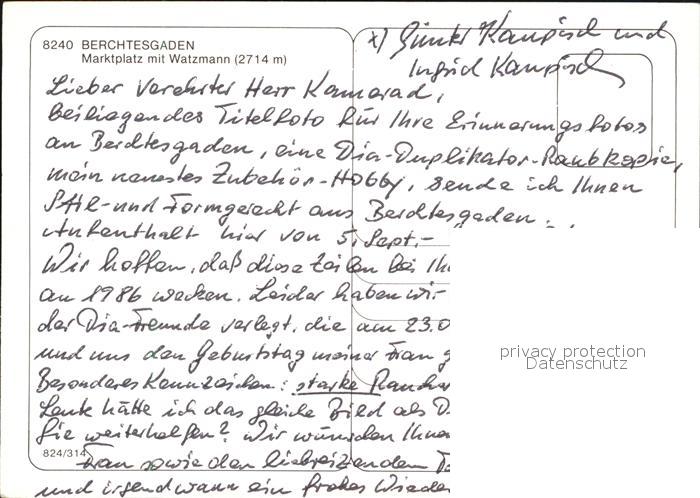 8240 BERCHTESGADEN
Marktplatz mit Watzmann (2714 m)
x) Günter Kampisch und
Ingrid Kampisch
Lieber Verehrter Herr Kamerad,
beiliegendes Titelfoto für Ihre Erinnerungsfotos
an Berchtesgaden, eine Dia-Duplikator-Raubkopie,
mein neuestes Zubehör-Hobby, sende ich Ihnen
Stil- und Formgerecht aus Berchtesgaden.
Aufenthalt hier von 5. Sept.-
Wir hoffen, daß diese Zeilen bei Ih
an 1986 wecken. Leider haben wir
der Dia-Freunde verlegt, die am 23.0
und uns den Geburtstag meiner Frau g
Besonderes Kennzeichen: starke Raucher
Leute hätte ich das gleiche Bild als D
Sie weiterhelfen? Wir wünschen Ihne
824/314
Frau sowie den liebreizenden
und irgendwann ein frohes Wieder
privacy protection
Datenschutz